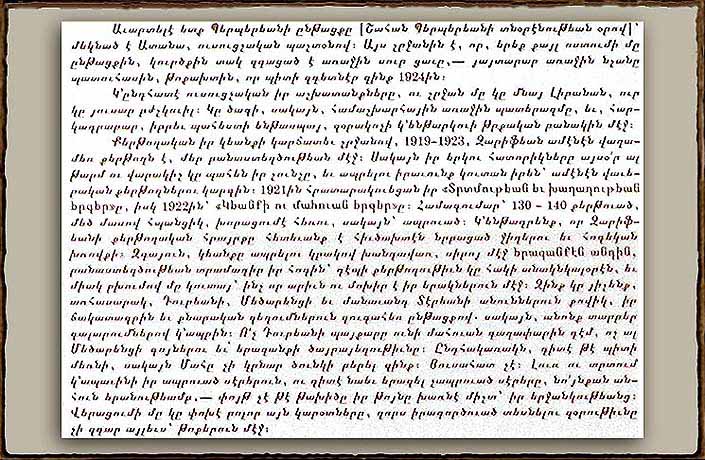 Աւարտելէ ետք Պէրպէրեանի ընթացքը [Շահան Պէրպէրեանի տնօրէնութեան օրով]՝
մեկնած է Ատանա, ուսուցչական պաշտօնով: Այս շրջանին է, որ, երեք քայլ ոստումի մը
ընթացքին, կուրծքին տակ զգացած է առաջին սուր ցաւը,— յայտարար առաջին նշանը
պատուհասին, թոքախտին, որ պիտի գգետնէր զինք 1924ին:
Կ՚ընդհատէ ուսուցչական իր աշխատանքները, ու շրջան մը կը մնայ Լիբանան, ուր
կը յուսար բժշկուիլ: Կը ծագի, սակայն, համաշխարհային առաջին պատերազմը, եւ, հար-
կադրաբար, իբրեւ պահեստի ենթասպայ, զօրակոչի կ՚ենթարկուի թրքական բանակին մէջ:
Քերթողական իր կեանքի կարճատեւ շրջանով, 1919-1923, Զարիֆեան ամէնէն վաղա-
մեռ քերթողն է, մեր բանաստեղծութեան մէջ: Սակայն իր երկու հատորիկները այսօ՛ր ալ
թարմ ու վարակիչ կը պահեն իր շունչը, եւ ապրելու իրաւունք կուտան իրեն՝ ամէնէն վաւե-
րական քերթողներու կարգին: 1921ին հրատարակուեցան իր «Տրտմութեան եւ խաղաղութեան
երգեր»ը, իսկ 1922ին՝ «Կեանքի ու մահուան երգեր»ը: Համագումար՝ 130 - 140 քերթուած,
մեծ մասով հպանցիկ, խորացումէ հեռու, սակայն՝ ապրուած: Կ՚ենթադրենք, որ Զարիֆ-
եանի քերթողական հրայրքը հետեւանք է հիւծախտէն նրբացած ջիղերու եւ հոգեկան
խռովքի: Զգայուն, կեանքը ապրելու կրակով խանդավառ, սիրոյ մէջ երազանքէն անդին,
բանաստեղծութեան տրամադիր իր հոգին՝ դէպի քերթողութիւն կը հակի անակնկալօրէն, եւ
միակ բխումով մը կուտայ՝ ինչ որ արիւն ու մոխիր է իր երակներուն մէջ: Զինք կը յիշենք,
առհասարակ, Դուրեանի, Մեծարենցի եւ մանաւանդ Տէրեանի անուններուն քովիկ, իր
ճակատագրին եւ քնարական զեղումներուն զուգահեռ ընթացքով. սակայն, անոնք տարբեր
գալարումներով կ՚ապրին: Ո՛չ Դուրեանի պայքարը ունի մահուան գաղափարին դէմ, ոչ ալ
Մեծարենցի գոյներու եւ՛ երազանքի ծայրայեղութիւնը: Ընդհակառակն, գիտէ թէ պիտի
մեռնի, սակայն Մահը չի կրնար ծունկի բերել զինք: Յուսահատ չէ: Լուռ ու տրտում
կ՚ապաւինի իր ապրուած սէրերուն, ու գիտէ նաեւ երազել չապրուած սէրերը, նո՛յնքան ան-
հուն երանութեամբ,— փոյթ չէ թէ թախիծը իր թոյնը խառնէ միշտ՝ իր երջանկութեանց:
Վերացումի մը կը փոխէ բոլոր այն կարօտները, զորս իրագործուած տեսնելու զօրութիւնը
չի զգար այլեւս՝ թոքերուն մէջ: